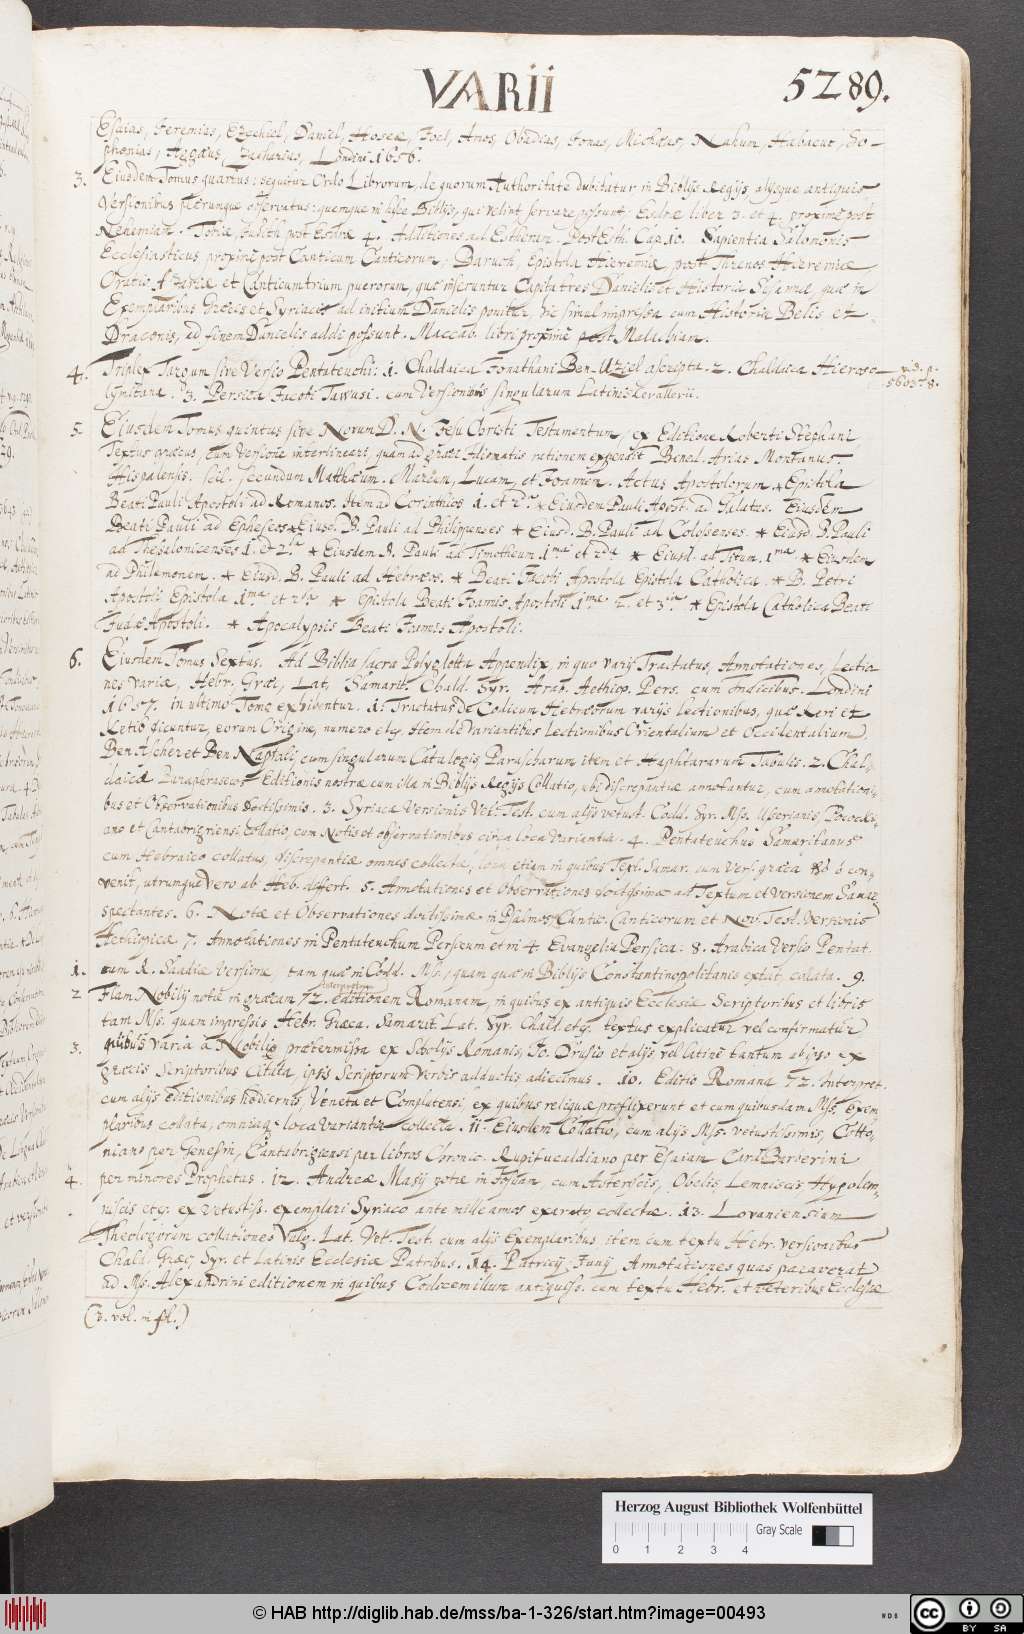 VARII 5289.
Esaias, Jeremias, Ezechiel, Daniel, Hoseae, Joel, Amos, Obadias, Jonas, Michaeas, Nahum, Habacuc, So-
phonias, Aggaeus, Zacharias, Londini 1656.
3. Eiusdem Tomus quartus: sequitur Ordo Librorum, de quorum Authoritate dubitatur in Biblijs Regijs, alijsque antiquis
Versionibus plerumque observatus: quemque in hisce Biblijs, qui velint servare possunt; Esdrae liber 3. et 4. proxime post
Nehemiam. Tobiae, Judith post Esdrae 4. Additiones ad Estheram. Post Esth. Cap. 10. Sapientia Salomonis
Ecclesiasticus proxime post Canticum Canticorum; Baruch, Epistola Hieremiae, post Threnos Hieremiae,
Oratio Azariae et Canticum trium puerorum, quae inseruntur Capiti tres Danielis et Historia Susannae, quae in
Exemplaribus Graecis et Syriacis ad initium Danielis ponitur, hic simul impressa cum Historia Belis et
Draconis, ad finem Danielis addi possunt. Maccab. libri proxime post Malachiam.
4. Triplex Targum sive Versio Pentateuchi: 1. Chaldaica Jonathani Ben-Uziel ascripta. 2. Chaldaica Hieroso- vid. p.
lymitana. 3. Persica Jacobi Tawusi. cum Versionibus singularum Latinis 5603. 8.
5. Eiusdem Tomus quintus sive Novum D. N. Jesu Christi Testamentum, ex Editione Roberti Stephani,
Textus graecus, cum Versione interlineari, quam ad graeci Idiomatis rationem expendit Bened. Arias Montanus.
Hispalensis. scil. secundum Matthaeum. Marcum, Lucam, et Joannem. Actus Apostolorum. * Epistola
Beati Pauli Apostoli ad Romanos. Item ad Corinthios 1. et 2. * Eiusdem Pauli Apost. ad Galatas. Eiusdem
Beati Pauli ad Ephesios * Eiusd. B. Pauli ad Philippenses * Eiusd. B. Pauli ad Colossenses. * Eiusd. B. Pauli
ad Thessalonicenses 1. et 2da * Eiusdem B. Pauli ad Timotheum 1ma et 2da * Eiusd. ad Titum. 1ma * Eiusdem
ad Philemonem. * Eiusd. B. Pauli ad Hebraeos. * Beati Jacobi Apostoli Epistola Catholica. * B. Petri
Apostoli Epistola 1ma et 2da * Epistola Beati Joannis Apostoli 1ma 2. et 3tia * Epistola Catholica Beati
Judae Apostoli. * Apocalypsis Beati Joannis Apostoli.
6. Eiusdem Tomus Sextus. Ad Biblia sacra Polyglotta Appendix, in quo varij Tractatus, Annotationes, Lectio-
nes variae, Hebr. Graec. Lat. Samarit. Chald. Syr. Arab. Aethiop. Pers. cum Indicibus. Londini
1657. in ultimo Tomo exhibentur. 1. Tractatus de Codicum Hebraeorum varijs lectionibus, quae Keri et
Ketib dicuntur, eorum Origine, numero etc. Item de Variantibus Lectionibus Orientalium et Occidentalium.
Ben Ascher et Ben Naphtali, cum singularum Catalogis Parascharum item et Haphtararum Tabulis. 2. Chal-
daicae Paraphraseos Editionis nostrae cum illa in Biblijs Regijs Collatio, ubi discrepantiae annotantur, cum annotationi-
bus et Observationibus doctissimis. 3. Syriacae Versionis Vet. Test. cum alijs vetust. Codd. Syr. Mss. Usserianis Pocock-
ano et Cantabrigiensi Collatio, cum Notis et observationibus circa loca Variantia. 4. Pentateuchus Samaritanus
cum Hebraico collatus, discrepantiae omnes collectae, loca etiam in quibus Text. Samar. cum Vers. graeca 70 con-
venit, utrumque vero ab Heb. differt. 5. Annotationes et Observationes doctissimae ad Textum et versionem Samar.
spectantes. 6. Notae et Observationes doctissimae in Psalmos, Cantic. Canticorum et Nov. Test. Versionis
Aethiopicae 7. Annotationes in Pentateuchum Persicum et in 4. Evangelia Persica. 8. Arabica Versio Pentat.
1. cum R. Saadiae Versione tam quae in Codd. Mss. quam quae in Biblijs Constantinopolitanis extat, collata. 9.
2 Flam. Nobilij notae in graecam 72. Interpretum editionem Romanam, in quibus ex antiquis Ecclesiae Scriptoribus et libris
tam Mss. quam impressis Hebr. Graeca. Samarit. Lat. Syr. Chald. etc. textus explicatur vel confirmatur
3. quibus varia a Nobilio praetermissa ex Scholijs Romanis, Jo. Drusio et alijs vel latine tantum ab ipso ex
graecis Scriptoribus citata, ipsis Scriptorum verbis adductis adiecimus. 10. Editio Romana 72. Interpret.
cum alijs editionibus hodiernis, Veneta et Complutensi, ex quibus reliquae profluxerunt et cum quibusdam Mss. exem
plaribus collata, omniaque loca variantia collecta. 11. Eiusdem Collatio, cum alijs Mss. vetustissimis, Cotto-
niano per Genesin, Cantabrigiensi per libros Chronic. Rupifucaldiano per Esaiam Card. Barberini
4. per minores Prophetas. 12. Andreae Masij notae in Josuam cum Asteriscis, Obelis, Lemniscis Hypolem-
niscis etc. ex vetustiss. exemplari Syriaco ante mille annos exarato collectae. 13. Lovaniensium
Theologorum collationes Vulg. Lat. Vet. Test. cum alijs exemplaribus item cum textu Hebr. versionibus
Chald. Graec. Syr. et Latinis Ecclesiae Patribus. 14. Patricij Junij Annotationes quas paraverat
ad Ms. Alexandrini editionem in quibus Codicem illum antiquiss. cum textu Hebr. et veteribus Ecclesiae
(6. vol. in fol.)
Herzog August Bibliothek Wolfenbüttel
Gray Scale
0 1 2 3 4
© HAB http://diglib.hab.de/mss/ba-1-326/start.htm?image=00493
WDB
cc BY SA